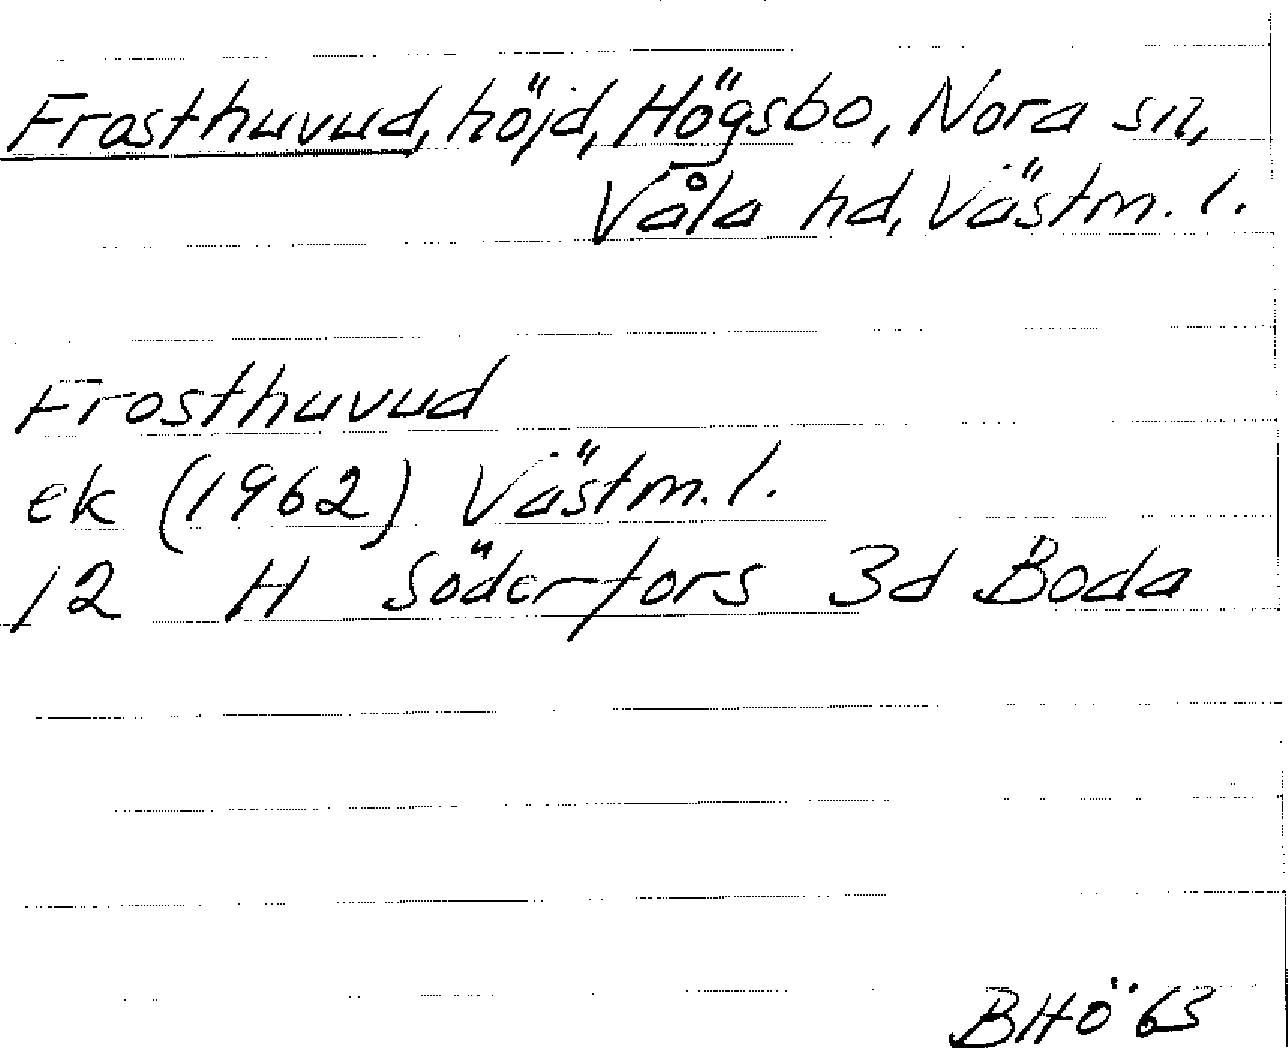 Frosthuvud, höjd, Högsbo, Nora sn,
Våla hd, Västm. l.
Frosthuvud
ek (1962) Västm. l.
12 H Söderfors 3d Böda
BHÖ 63